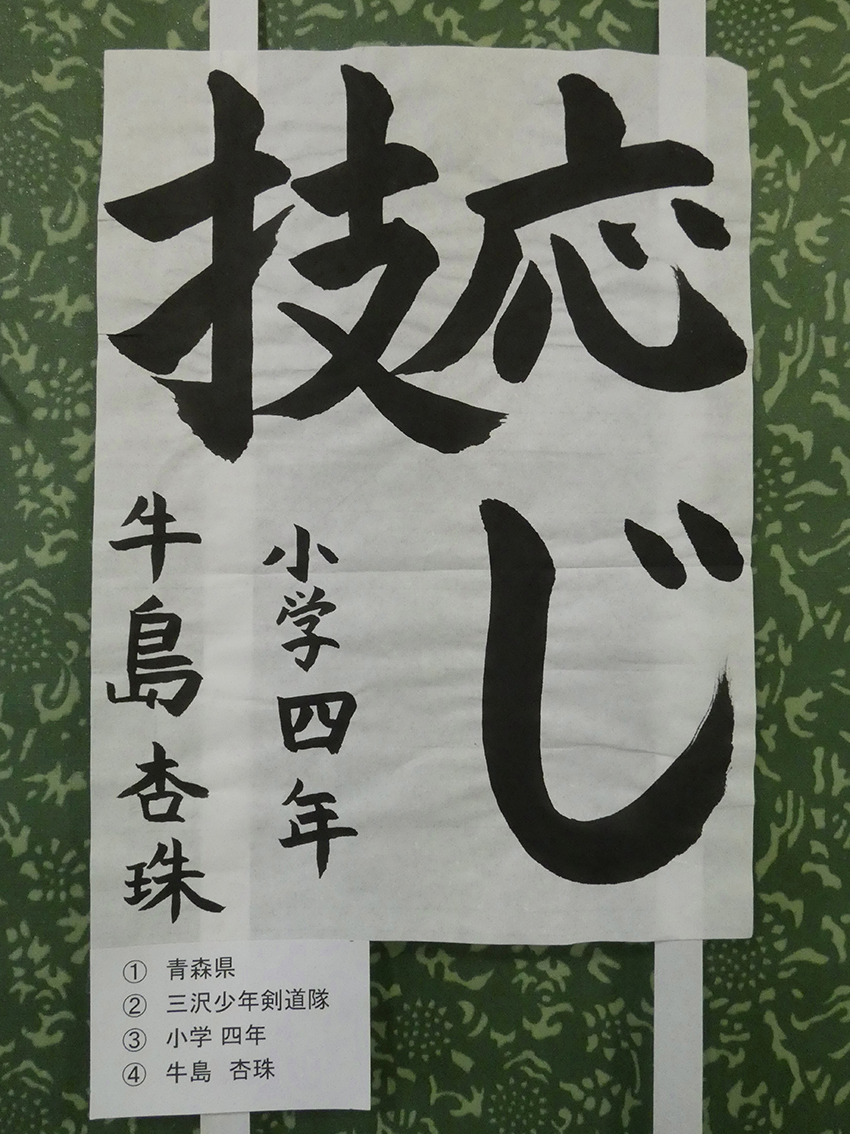 応じ
技
小学四年
牛島杏珠
① 青森県
② 三沢少年剣道隊
③ 小学 四年
④ 牛島 杏珠